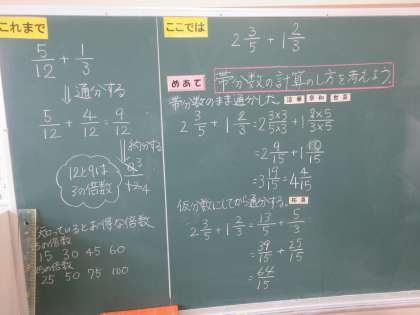 これまで
5/12 + 1/3
⇓通分する
5/12 + 4/12 = 9/12
⇓約分する
12と9は
3の倍数
3
4
知っているとお得な倍数
15 30 45 60
25の倍数
25 50 75 100
ここでは
2 3/5 + 1 2/3
めあて
帯分数の計算のし方を考えよう
帯分数のまま通分した。
2 3/5 + 1 2/3 = 2 3×3/5×3 + 1 2×5/3×5
= 2 9/15 + 1 10/15
= 3 19/15 = 4 4/15
仮分数にしてから通分する。
2 3/5 + 1 2/3 = 13/5 + 5/3
= 39/15 + 25/15
= 64/15